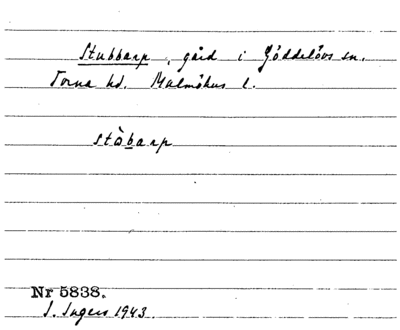 Stubbarp, gård i Göddelövs sn.
Torna hd. Malmöhus l.
stòbarp
Nr 5838.
I. Ingers 1943.